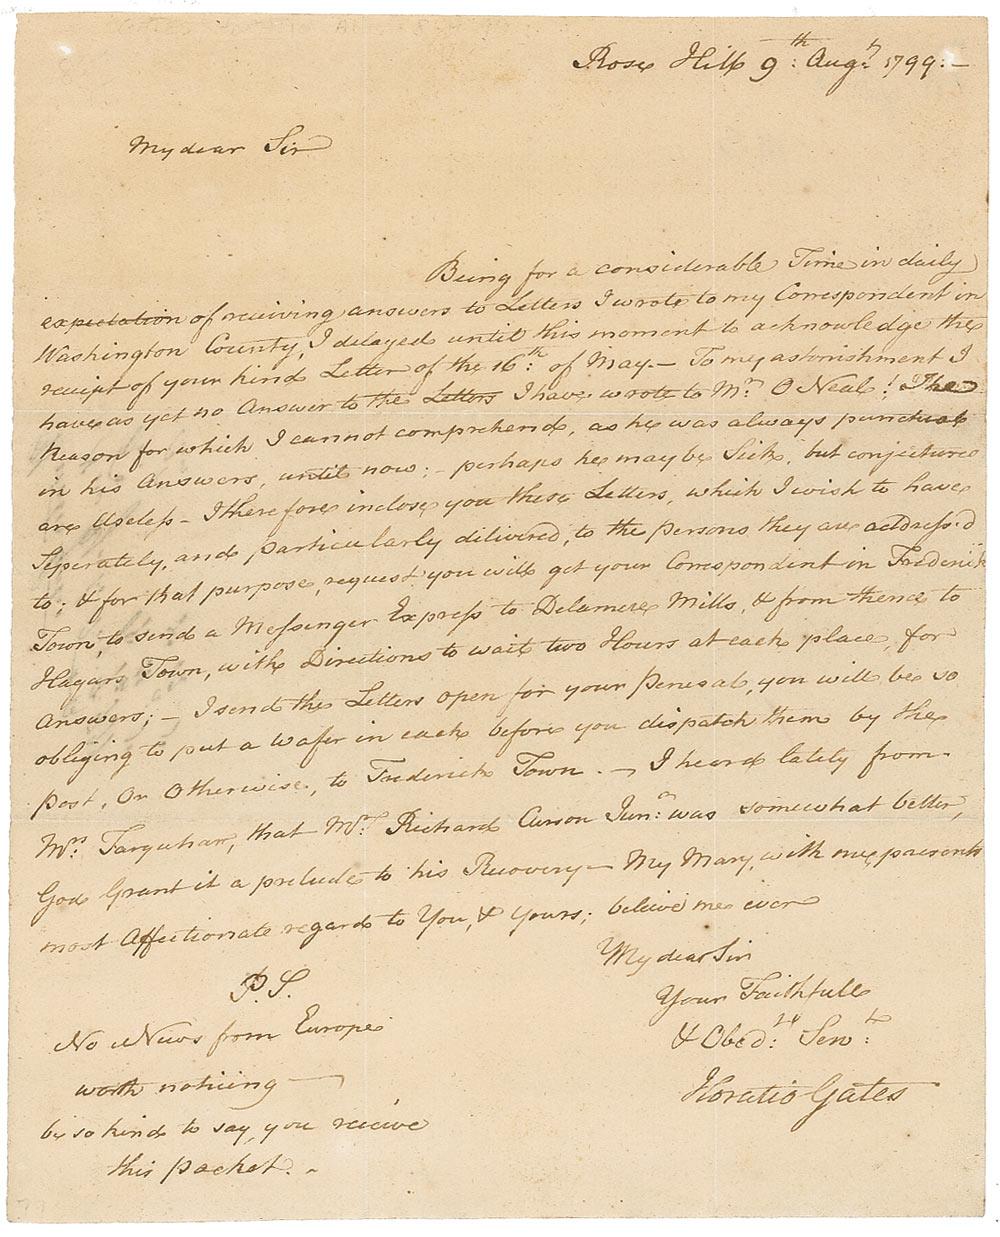 Rose Hill 9th: Augt: 1799:—
My dear Sir
Being for a considerable Time in daily
expectation of receiving answers to Letters I wrote to my Correspondent in
Washington County, I delayed until this moment to acknowledge the
receipt of your kind Letter of the 16th: of May.— To my astonishment I
have as yet no Answer to the Letters I have wrote to Mr: O Neal! The
Reason for which I cannot comprehend, as he was always punctual
in his Answers, until now; – perhaps he may be Sick, but conjectures
are Useless – I therefore inclose you these Letters, which I wish to have
Seperately, and particularly delivered, to the persons they are address'd
to; & for that purpose, request you will get your Correspondent in Frederick
Town, to send a Messinger Express to Delamere Mills, & from thence to
Hagars Town, with Directions to wait two Hours at each place, for
Answers; – I send the Letters open for your Perusal, you will be so
obliging to put a wafer in each before you dispatch them by the
post, Or Otherwise, to Frederick Town. — I heard lately from
Mrs: Farquhar, that Mr: Richard Curson Junr: was somewhat better,
God Grant it a prelude to his Recovery — My Mary, with me presents
most Affectionate regard to You, & Yours; believe me ever
My dear Sir
Your Faithfull
& Obedt: Servt:
Horatio Gates
P.S.
No News from Europe
worth noticing —
be so kind to say, you receive
this packet. –